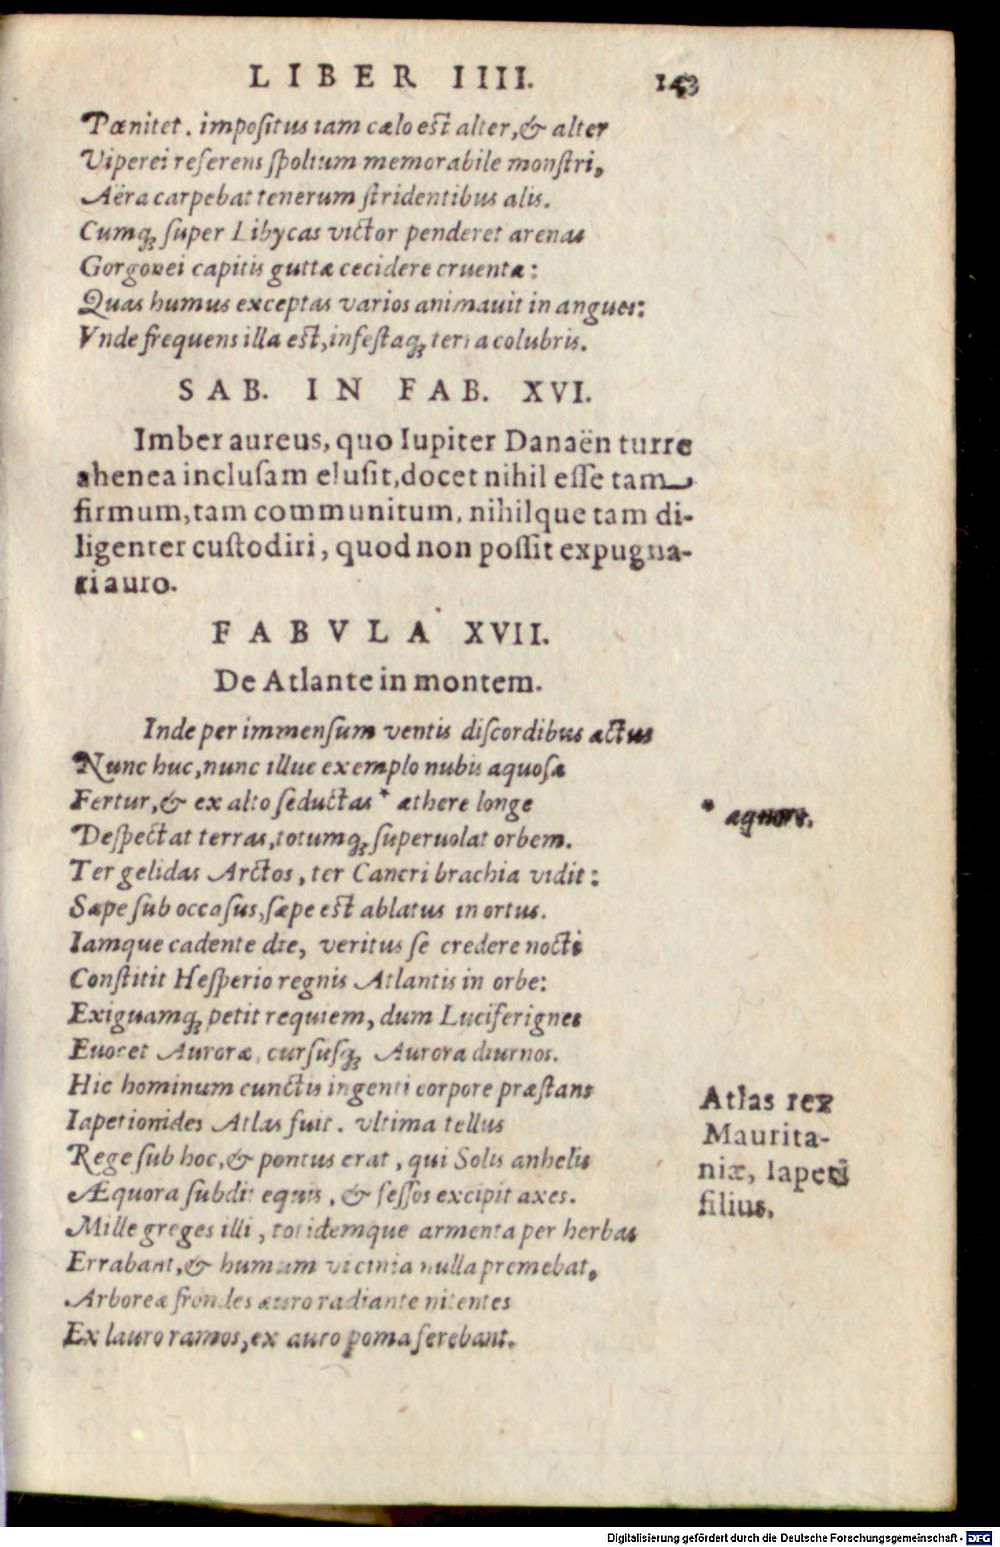 LIBER IIII. 143
Pœnitet. impositus iam cælo est alter, & alter
Viperei referens spolium memorabile monstri,
Aëra carpebat tenerum stridentibus alis.
Cumq; super Libycas victor penderet arenas
Gorgonei capitis guttæ cecidere cruentæ:
Quas humus exceptas varios animauit in angues:
Vnde frequens illa est, infestaq; terra colubris.
SAB. IN FAB. XVI.
Imber aureus, quo Iupiter Danaën turre
ahenea inclusam elusit, docet nihil esse tam
firmum, tam communitum, nihilque tam di-
ligenter custodiri, quod non possit expugna-
ri auro.
FABVLA XVII.
De Atlante in montem.
Inde per immensum ventis discordibus actus
Nunc huc, nunc illuc exemplo nubis aquosæ
Fertur, & ex alto seductas * æthere longe
* æquore.
Despectat terras, totumq; superuolat orbem.
Ter gelidas Arctos, ter Cancri brachia vidit:
Sæpe sub occasus, sæpe est ablatus in ortus.
Iamque cadente die, veritus se credere nocti
Constitit Hesperio regnis Atlantis in orbe:
Exiguamq; petit requiem, dum Lucifer ignes
Euocet Auroræ, cursusq; Aurora diurnos.
Hic hominum cunctis ingenti corpore præstans
Iapetionides Atlas fuit. vltima tellus
Rege sub hoc, & pontus erat, qui Solis anhelis
Æquora subdit equis, & fessos excipit axes.
Atlas rex
Maurita-
niæ, Iapeti
filius.
Mille greges illi, totidemque armenta per herbas
Errabant, & humum vicinia nulla premebat,
Arboreæ frondes auro radiante nitentes
Ex lauro ramos, ex auro poma ferebant.
Digitalisierung gefördert durch die Deutsche Forschungsgemeinschaft - DFG